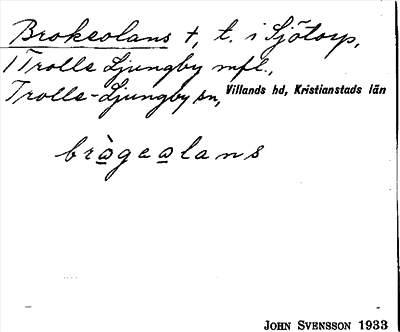 Brokeolans †, t. i Sjötorp,
1 Trolle Ljungby mfl.,
Trolle-Ljungby sn, Villands hd, Kristianstads län
brå̱̀geo̱lans
JOHN SVENSSON 1933